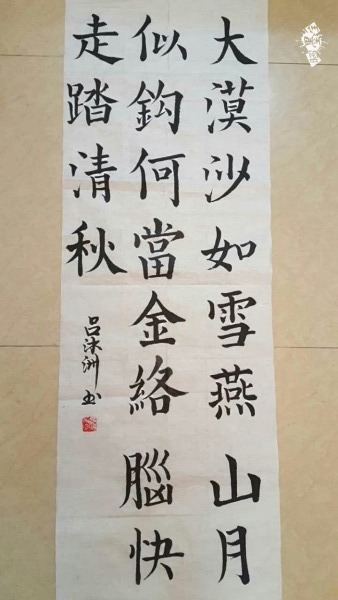 大漠沙如雪燕山月
似鈎何當金絡腦快
走踏清秋
吕沐洲书